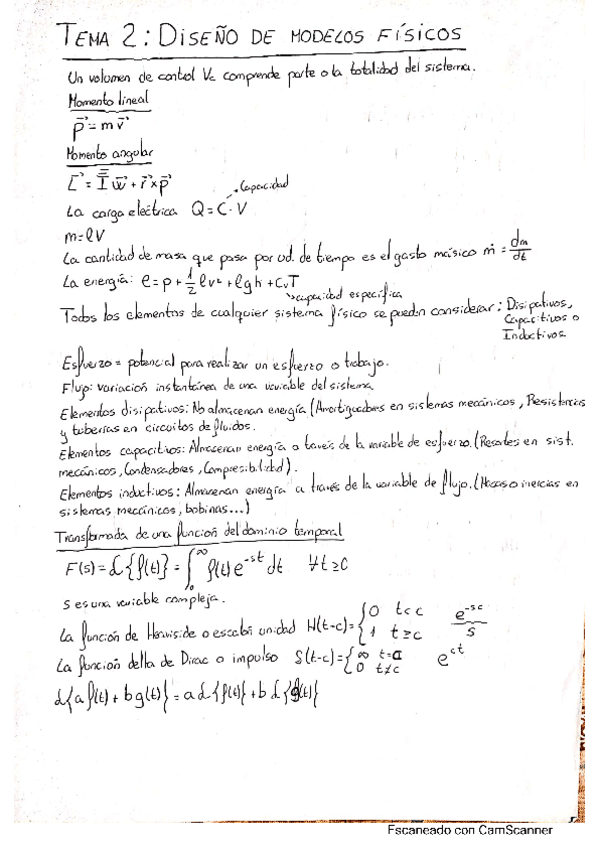 TEMA 2: DISEÑO DE MODELOS FÍSICOS
Un volumen de control Vc comprende parte o la totalidad del sistema.
Momento lineal
p⃗ = m v⃗
Momento angular
L⃗ = I w⃗ + r⃗ x p⃗
Capacidad
La carga eléctrica Q = C · V
m = ρV
La cantidad de masa que pasa por ud. de tiempo es el gasto másico ṁ = dm/dt
La energía: e = p + 1/2 ρv² + ρgh + CvT
capacidad específica
Todos los elementos de cualquier sistema físico se pueden considerar: Disipativos,
Capacitivos o
Inductivos
Esfuerzo = potencial para realizar un esfuerzo o trabajo.
Flujo: variación instantánea de una variable del sistema
Elementos disipativos: No almacenan energía (Amortiguadores en sistemas mecánicos, Resistencias
y tuberías en circuitos de fluidos.
Elementos capacitivos: Almacenan energía a través de la variable de esfuerzo. (Resortes en sist.
mecánicos, Condensadores, Compresibilidad).
Elementos inductivos: Almacenan energía a través de la variable de flujo. (Masas o inercias en
sistemas mecánicos, bobinas...)
Transformada de una función del dominio temporal
F(s) = L{f(t)} = ∫₀^∞ f(t) e^-st dt ∀t ≥ 0
s es una variable compleja.
La función de Heaviside o escalón unidad H(t-c) = {0 t<c e^-sc/s
1 t≥c
La función delta de Dirac o impulso S(t-c) = {∞ t=a e^ct
0 t≠c
L{a f(t) + b g(t)} = a L{f(t)} + b L{g(t)}
Escaneado con CamScanner